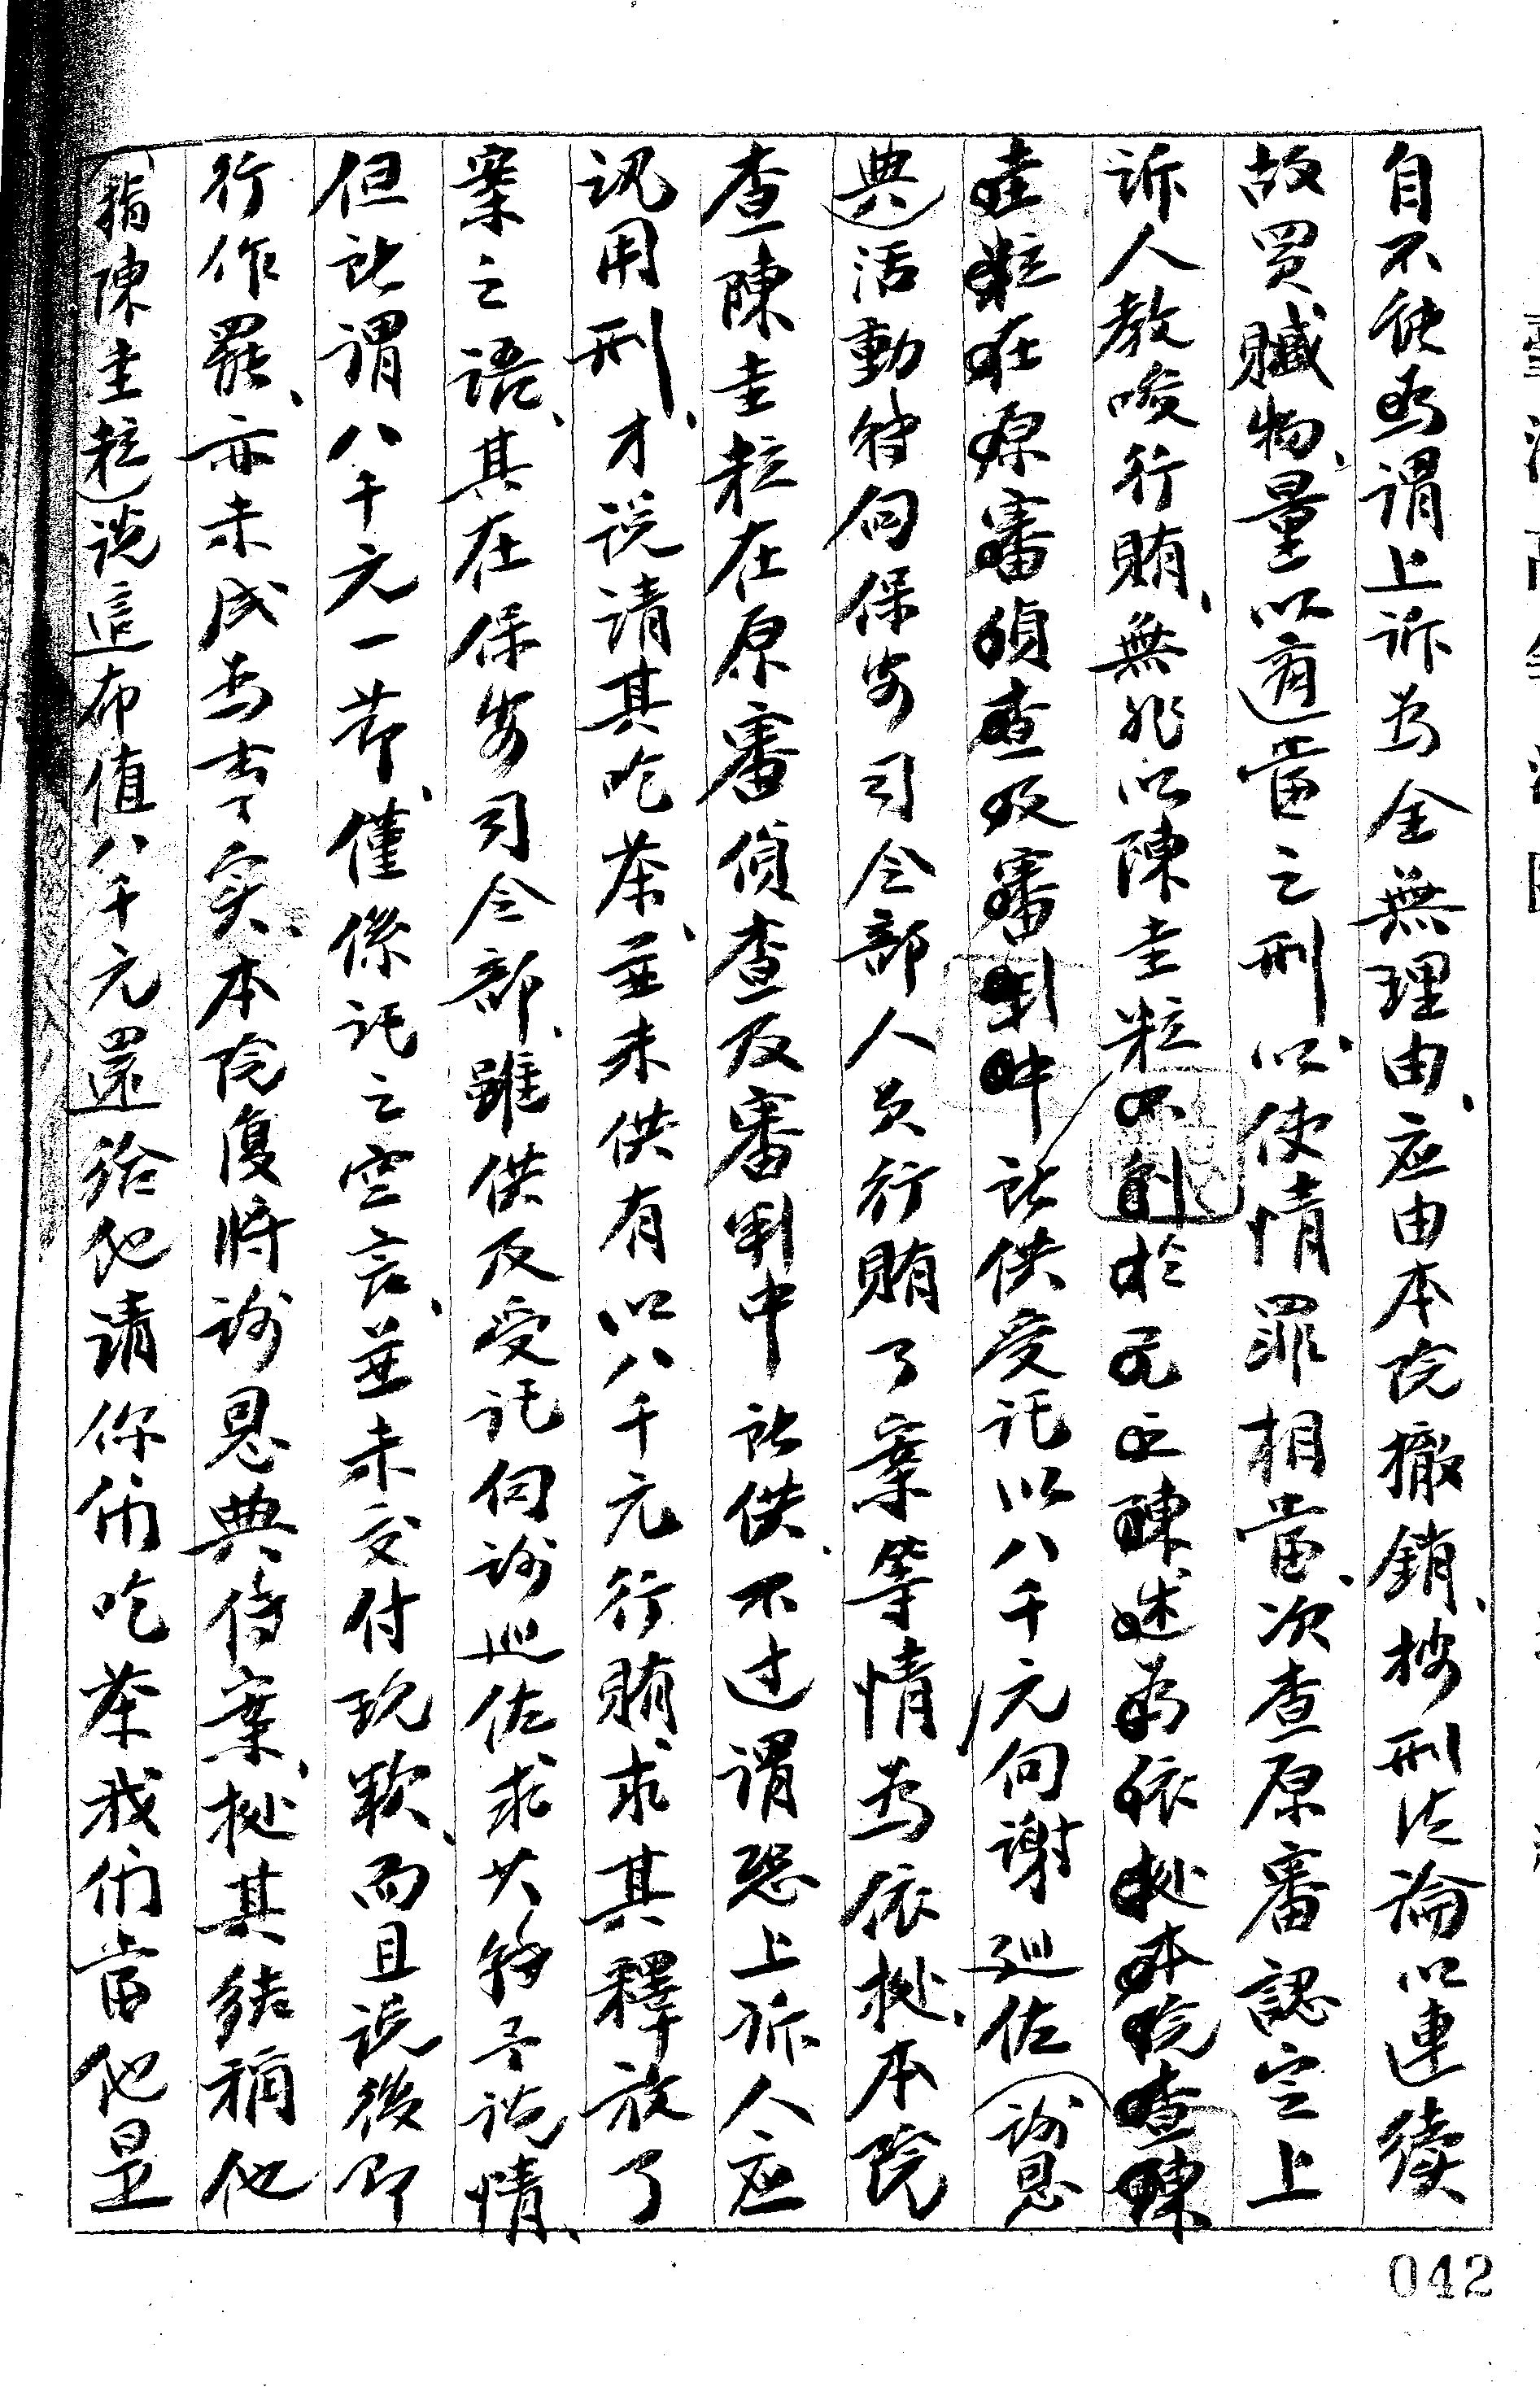 自不能為謂上訴為全無理由、应由本院撤銷、按刑法論以連續
故買贓物、量以適當之刑、以使情罪相當、次查原審認定上
訴人教唆行賄、無非以陳圭粒不利於己之陳述為依據本院查陳
圭粒在原審偵查及審判中訟供受託以八千元向謝巡佐(謝恩
典)活動轉向保安司令部人員行賄了案等情為依據、本院
查陳圭粒在原審偵查及審判中訟供、不过謂恐上訴人应
訊用刑、才説请其吃茶、並未供有以八千元行賄求其釋放了
案之語、其在保安司令部、雖供及受託向謝巡佐求其轉予説情、
但訟謂八千元一节、僅係託之空言、並未交付現款、而且説後即
行作罷、亦未成為事实、本院復將謝恩典传案、據其結稱他
(指陳圭粒)説這布值八千元還給他请你們吃茶我們當他是
042